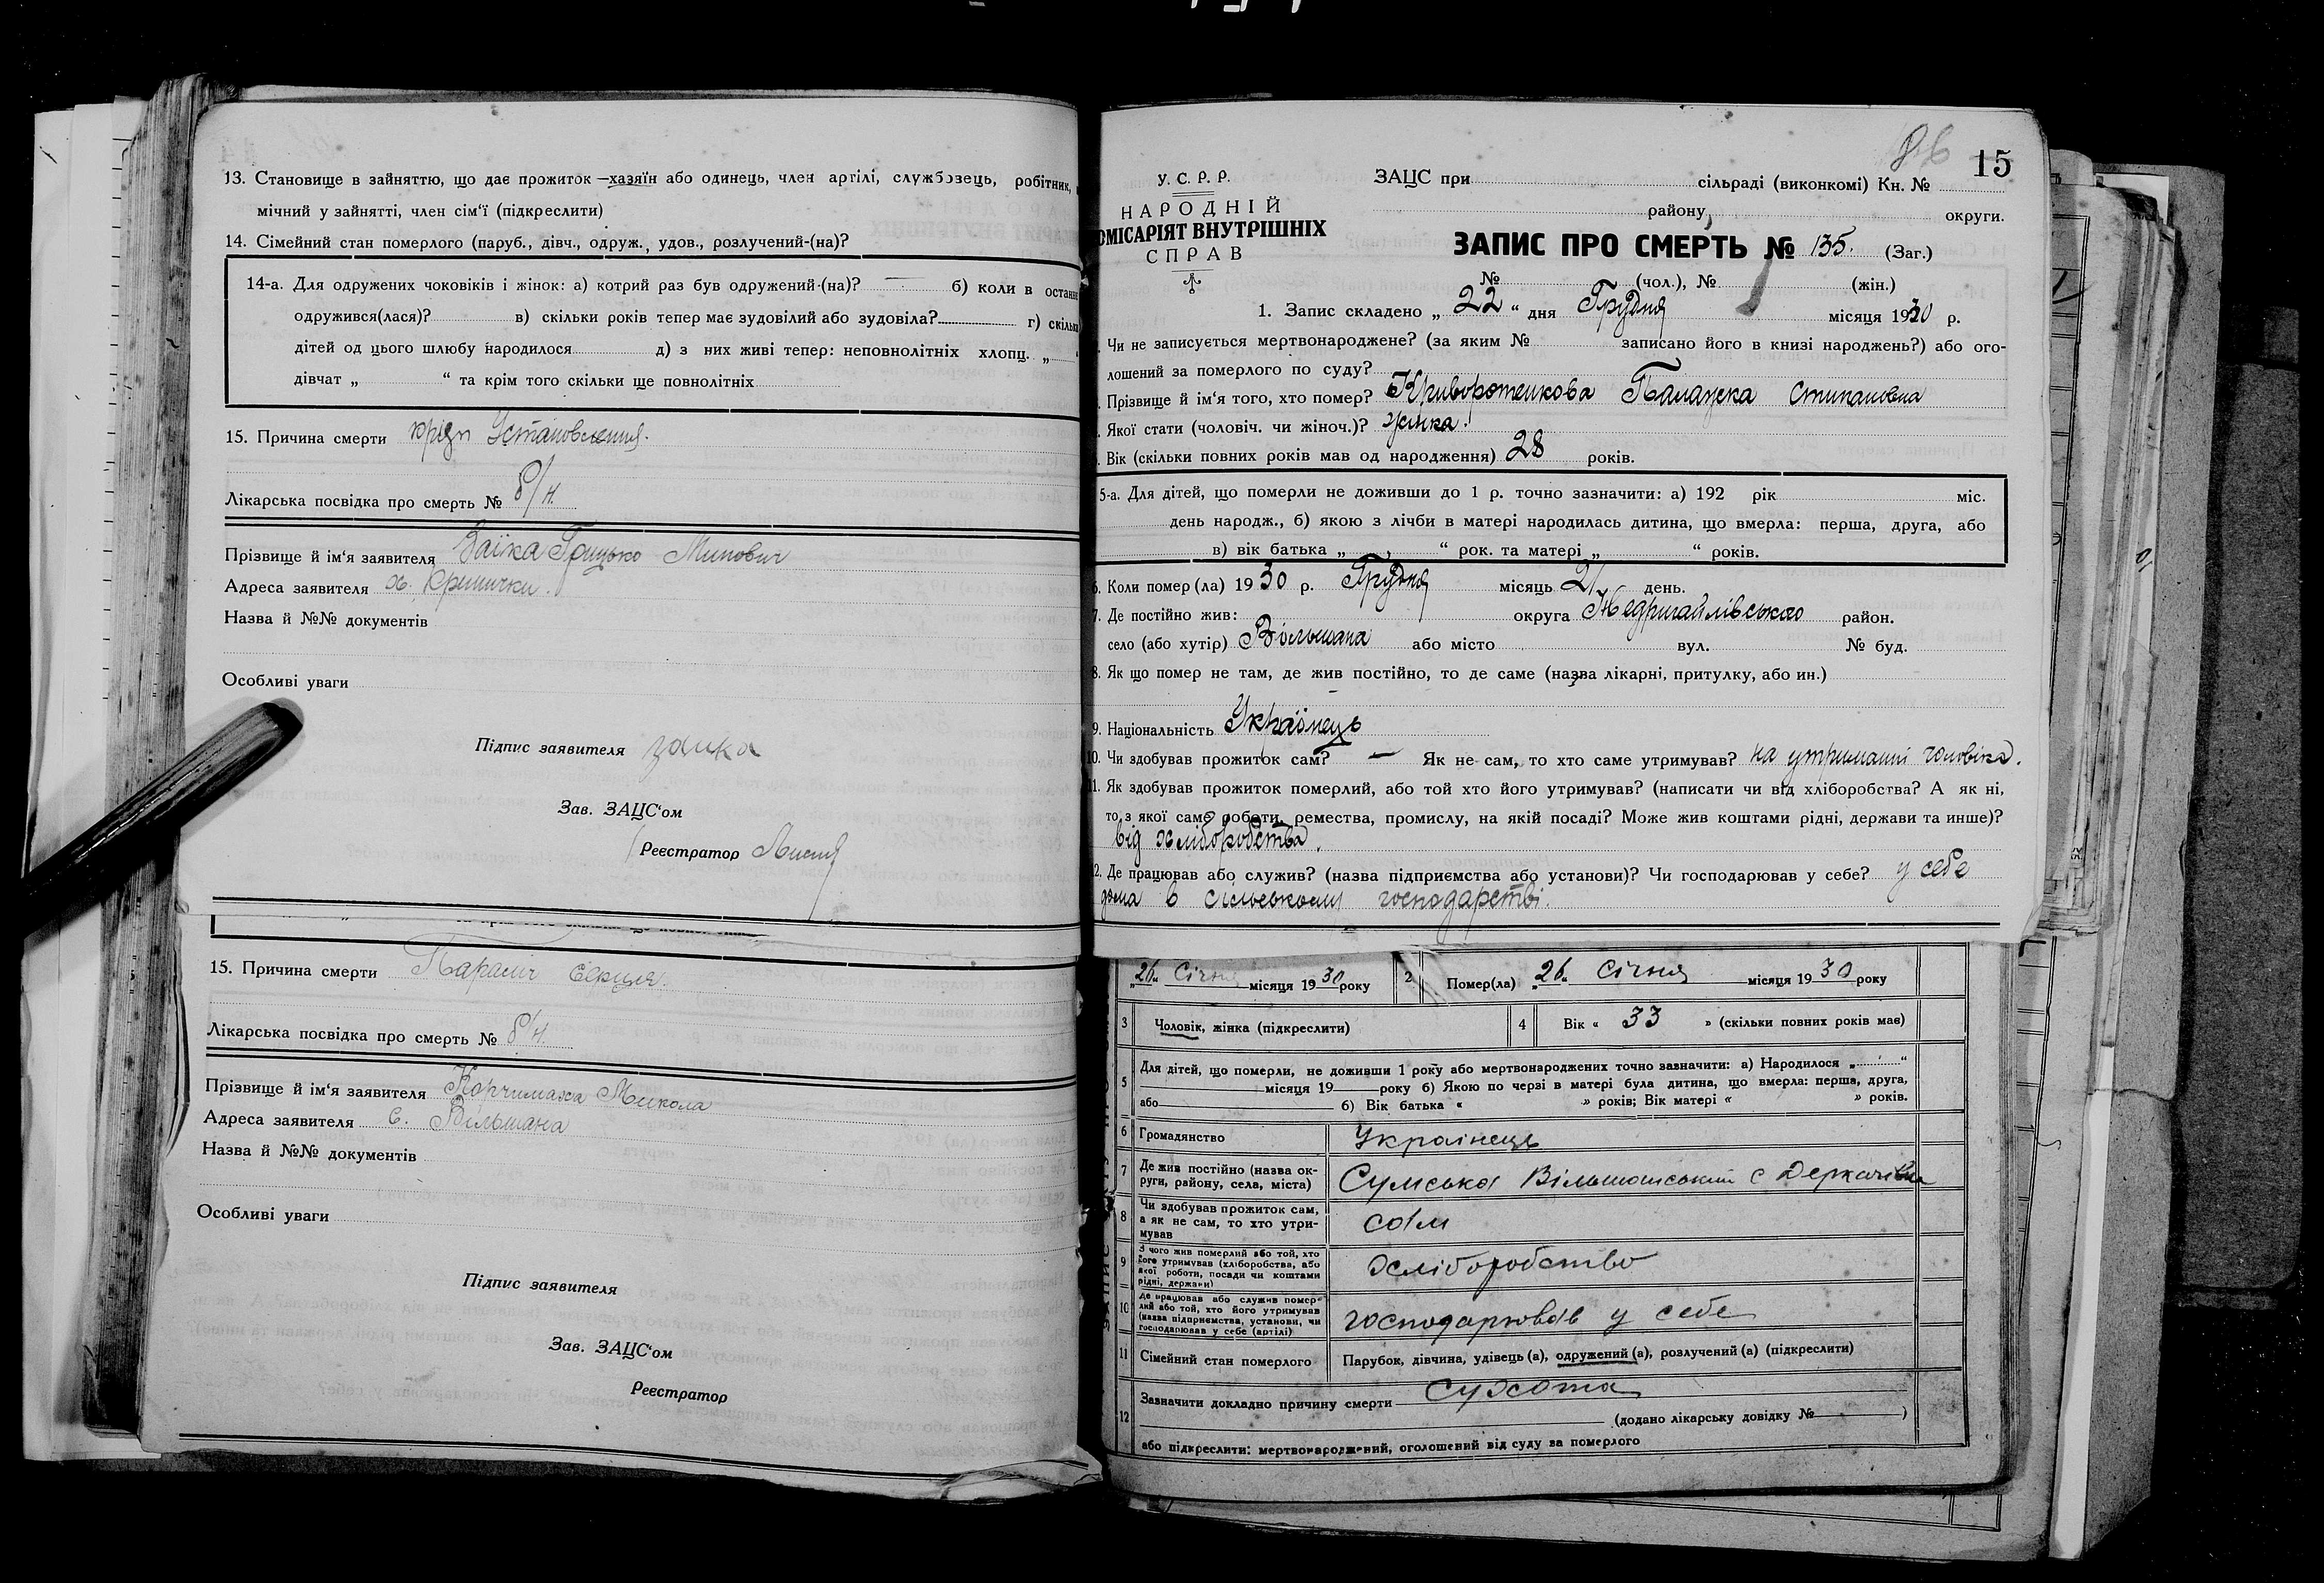 13. Становище в зайняттю, що дає прожиток —хазяїн або одинець, член аргілі, службовець, робітник,
мічний у зайнятті, член сім‘ї (підкреслити)
14. Сімейний стан померлого (паруб., дівч., одруж., удов., розлучений-(на)?
14-а. Для одружених чоковіків і жінок: а) котрий раз був одружений-(на)? — б) коли в останн
одружився(лася)? в) скільки років тепер має зудовілий або зудовіла? г) скільк
дітей од цього шлюбу народилося д) з них живі тепер: неповнолітніх хлопц. „
дівчат „ “ та крім того скільки ще повнолітніх
15. Причина смерти Установлення.
Лікарська посвідка про смерть № б/н.
Прізвище й ім‘я заявителя Заїка Грицько
Адреса заявителя х. Кринички.
Назва й №№ документів
Особливі уваги
Підпис заявителя Заика
Зав. ЗАЦС‘ом
Реєстратор
15. Причина смерти Параліч Серця.
Лікарська посвідка про смерть № б/н.
Прізвище й ім‘я заявителя Микола
Адреса заявителя с. Вільшана
Назва й №№ документів
Особливі уваги
Підпис заявителя
Зав. ЗАЦС‘ом
Реєстратор
15
У. С. Р. Р.
НАРОДНІЙ
ОМІСАРІЯТ ВНУТРІШНІХ
СПРАВ
ЗАЦС при сільраді (виконкомі) Кн. №
району, округи.
ЗАПИС ПРО СМЕРТЬ № 135. (Заг.)
№ (чол.), № (жін.)
1. Запис складено „ 22 “ дня Грудня місяця 1930 р.
Чи не записується мертвонароджене? (за яким № записано його в книзі народжень?) або ого-
лошений за померлого по суду?
Прізвище й ім‘я того, хто помер? Криворотенкова Палажка Степановна
Якої стати (чоловіч. чи жіноч.)? жінка.
Вік (скільки повних років мав од народження) 28 років.
5-а. Для дітей, що померли не доживши до 1 р. точно зазначити: а) 192 рік міс.
день народж., б) якою з лічби в матері народилась дитина, що вмерла: перша, друга, або
в) вік батька „ “ рок. та матері „ “ років.
6. Коли помер(ла) 1930 р. Грудня місяць 21 день.
7. Де постійно жив: округа Недригайлівського район.
село (або хутір) Вільшана або місто вул. № буд.
8. Як що помер не там, де жив постійно, то де саме (назва лікарні, притулку, або ин.)
9. Національність Українець
10. Чи здобував прожиток сам? — Як не сам, то хто саме утримував? на утриманні чоловіка.
11. Як здобував прожиток померлий, або той хто його утримував? (написати чи від хліборобства? А як ні,
то з якої саме роботи, ремества, промислу, на якій посаді? Може жив коштами рідні, держави та инше)?
від хліборобства.
12. Де працював або служив? (назва підприємства або установи)? Чи господарював у себе? у себе
дома в сільському господарстві.
„26“ Січня місяця 1930 року 2 Помер(ла) „26“ Січня місяця 1930 року
3 Чоловік, жінка (підкреслити) 4 Вік « 33 » (скільки повних років має)
5 Для дітей, що померли, не доживши 1 року або мертвонароджених точно зазначити: а) Народилося „ “
місяця 19 року б) Якою по черзі в матері була дитина, що вмерла: перша, друга,
або б) Вік батька « » років; Вік матері « » років.
6 Громадянство Українець
7 Де жив постійно (назва ок-
руги, району, села, міста) Сумська Вільшанський с Деркачівка
8 Чи здобував прожиток сам,
а як не сам, то хто утри-
мував сам
9 З чого жив померлий або той, хто
його утримував (хліборобства, або
якої роботи, посади чи коштами
рідні, держави) хліборобство
10 Де працював або служив помер-
лий або той, хто його утримував
(назва підприємства, установи, чи
господарював у себе (артілі) господарював у себе
11 Сімейний стан померлого Парубок, дівчина, удівець(а), одружений(а), розлучений(а) (підкреслити)
12 Зазначити докладно причину смерти Сухота
(додано лікарську довідку № )
або підкреслити: мертвонароджений, оголошений від суду за померлого